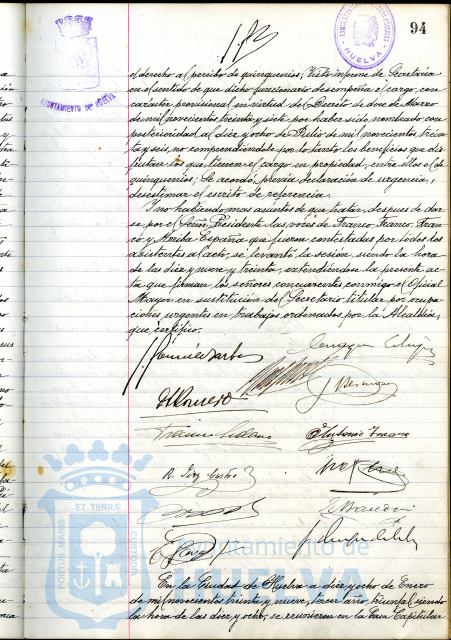 94
AYUNTAMIENTO DE HUELVA
HUELVA
el derecho al percibo de quinquenios; Visto informe de Secretaría
en el sentido de que dicho funcionario desempeña el cargo, con
carácter provisional en virtud de Decreto de doce de Marzo
de mil novecientos treinta y siete por haber sido nombrado con
posterioridad al diez y ocho de Julio de mil novecientos trein-
ta y seis, no comprendiéndole por lo tanto los beneficios que dis-
frutan los que tienen el cargo en propiedad, entre ellos el de
quinquenios; Se acordó, previa declaración de urgencia,
desestimar el escrito de referencia.
Y no habiendo mas asuntos de que tratar, despues de dar-
se por el Señor Presidente las voces de Franco, Franco, Fran-
co y Arriba España que fueron contestadas por todos los
asistentes al acto, se levantó la sesión siendo la hora
de las diez y nueve y treinta, extendiéndose la presente ac-
ta que firman los señores concurrentes conmigo el Oficial
Mayor en sustitución del Secretario titular por ocupa-
ciones urgentes en trabajos ordenados por la Alcaldía,
que certifico.
Romero
Antonio
ET TERRÆ
PORTUS MARIS
CUSTODIA
Ayuntamiento de
HUELVA
En la Ciudad de Huelva a diez y ocho de Enero
de mil novecientos treinta y nueve, tercer año triunfal, siendo
la hora de las diez y ocho, se reunieron en la Casa Capitular